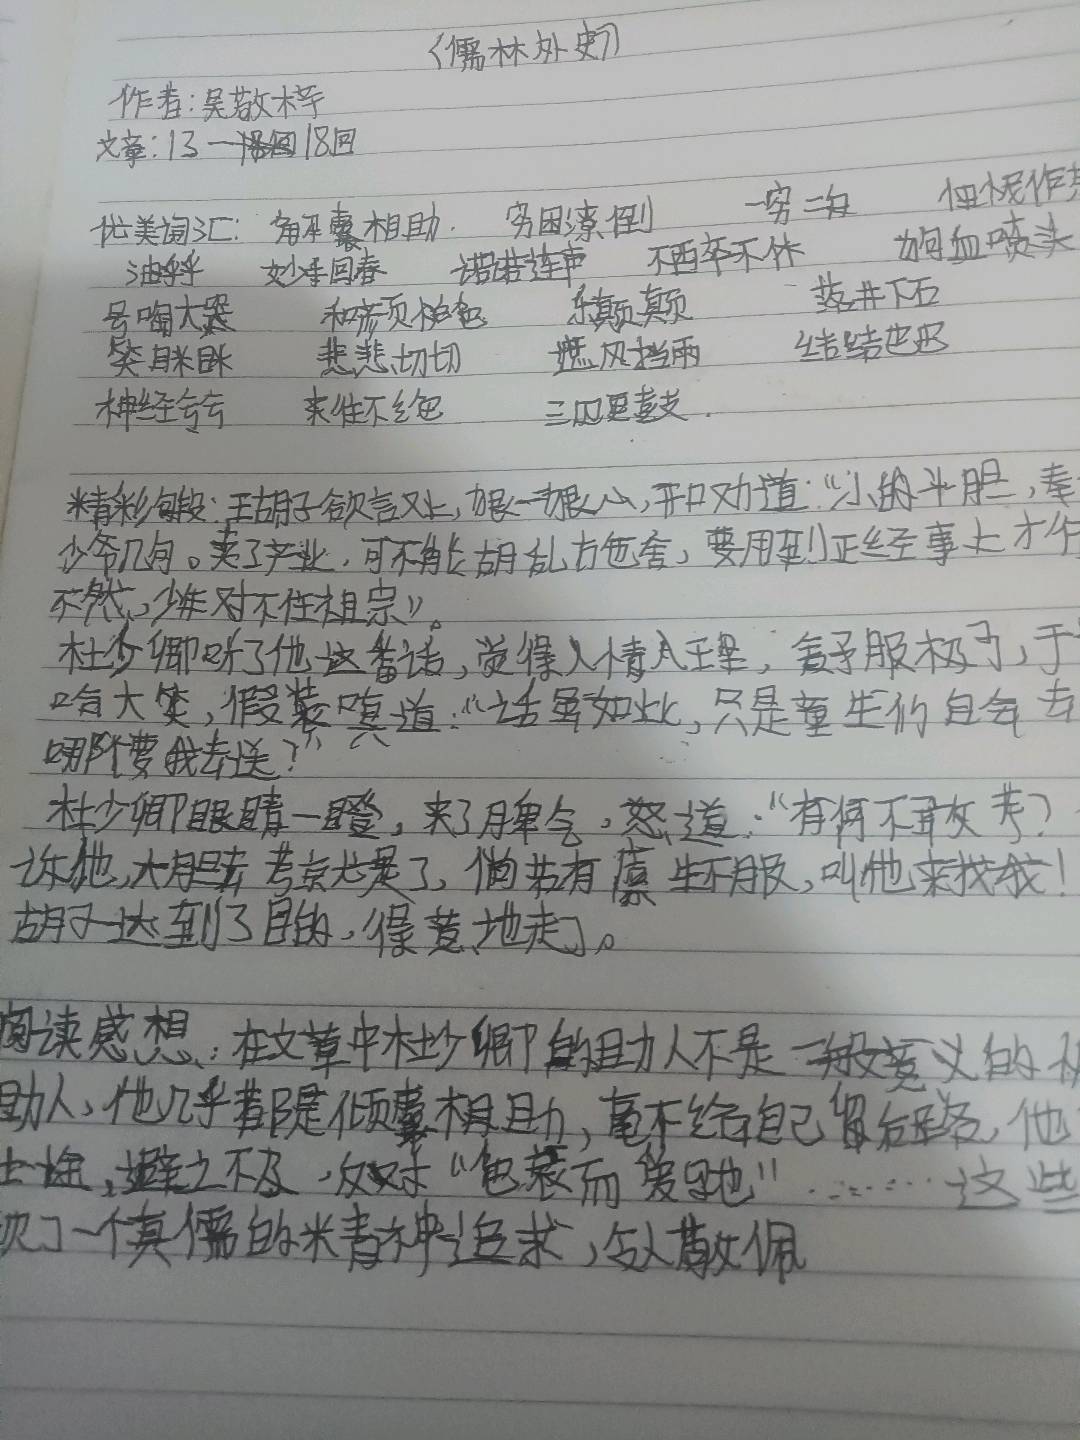 《儒林外史》
作者:吴敬梓
文章:13一18回
优美词汇: 解囊相助. 穷困潦倒 一穷二白 忸怩作
油乎乎 妙手回春 诺诺连声 不善罢不休 狗血喷头
号啕大哭 和颜悦色 乐颠颠 落井下石
笑眯眯 悲悲切切 遮风挡雨 结结巴巴
神经兮兮 来往不绝 三四更鼓.
精彩句段:王胡子欲言又止,狠一狠心,开口劝道:“小的斗胆,奉
少爷几句。卖了产业,可不能胡乱施舍,要用到正经事上才行
不然,少年对不住祖宗”。
杜少卿听了他这番话,觉得入情入理,舒服极了,于
哈大笑,假装嗔道:“话虽如此,只是童生们自会去
哪个要我去送?”
杜少卿眼睛一瞪,来了脾气,怒道:“有何不敢考?
诉他,大胆去考就是了,倘若有廪生不服,叫他来找我!
胡子达到了目的,得意地走了。
阅读感想:在文章中杜少卿的助人不是一般意义的
助人,他几乎都是倾囊相助,毫不给自己留后路,他
仕途,避之不及,反对“包装而发迹”……这些
次了一个真儒的精神追求,令人敬佩